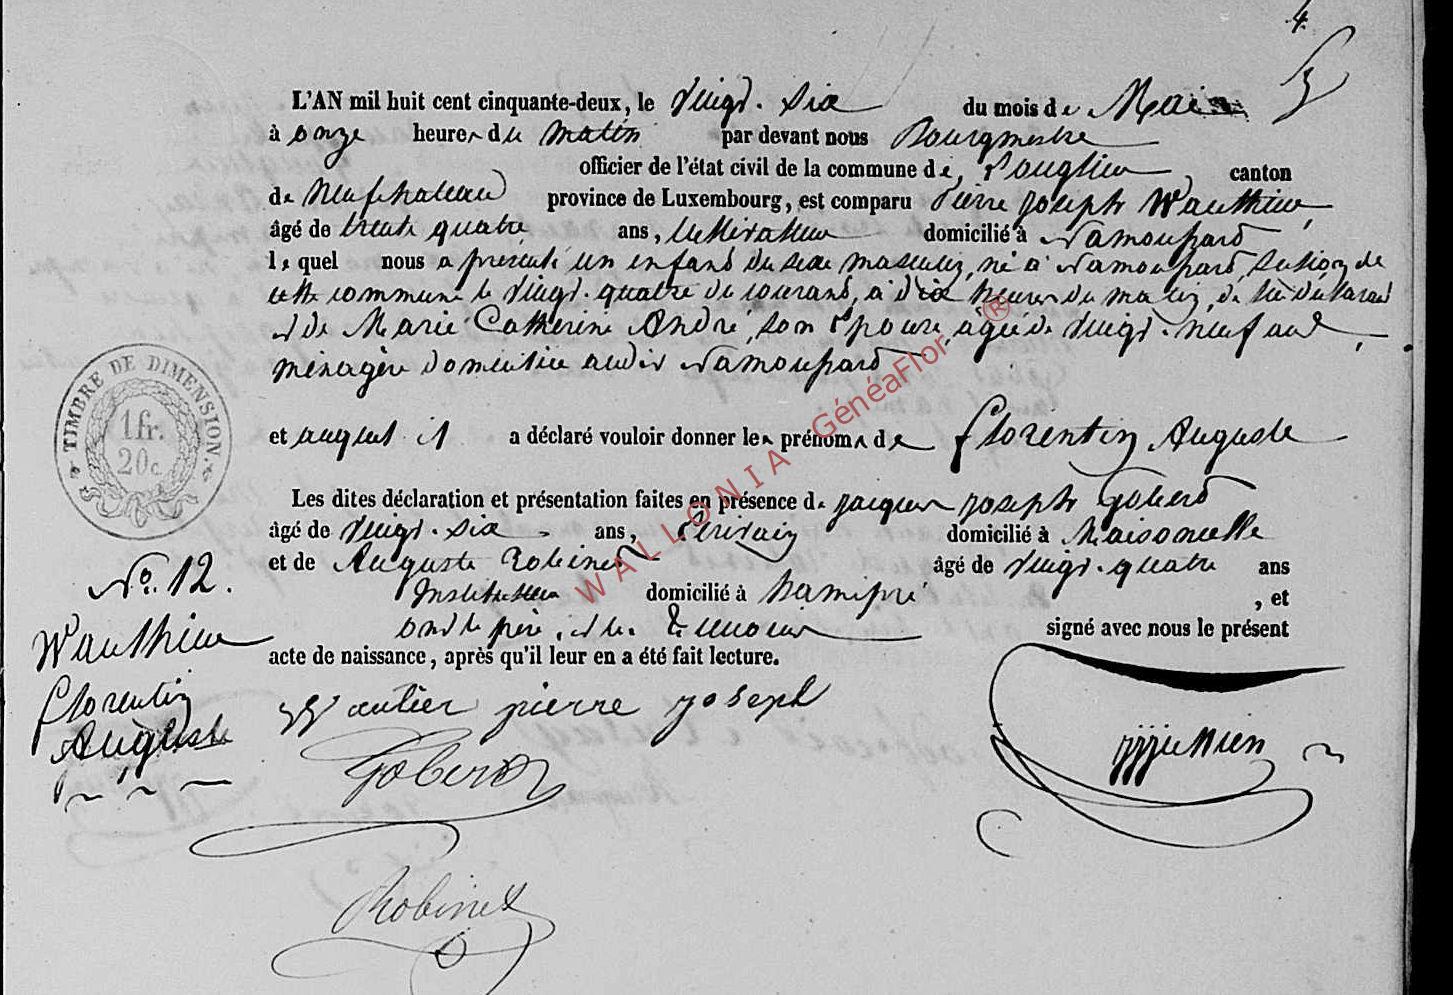 4.
L'AN mil huit cent cinquante-deux, le Vingt-six du mois de Mai
à onze heures du matin par devant nous Bourgmestre
officier de l'état civil de la commune de Longlier, canton
de Neufchateau province de Luxembourg, est comparu Pierre Joseph Wauthieu,
âgé de trente quatre ans, domicilié à Namoussard
lequel nous a présenté un enfant du sexe masculin, né à Namoussard, section de
cette commune le vingt-quatre du courant, à dix heures du matin, de lui déclarant
et de Marie Catherine André, son Epouse, agée de vingt-neuf ans,
ménagère domiciliée audit Namoussard
et auquel il a déclaré vouloir donner les prénoms de Florentin Auguste
Les dites déclaration et présentation faites en présence de Jacques Joseph Gobert
âgé de vingt-six ans, Ecrivain domicilié à Maisoncelle
et de Auguste Robinet âgé de vingt-quatre ans
Instituteur domicilié à hamipré, et
ont le père et les témoins signé avec nous le présent
acte de naissance, après qu'il leur en a été fait lecture.
TIMBRE DE DIMENSION
1 fr.
20 c.
No. 12.
Wauthieu
Florentin
Auguste
Wautier pierre joseph
Gobert
Robinet
WALLONIA GénéaFlor ®